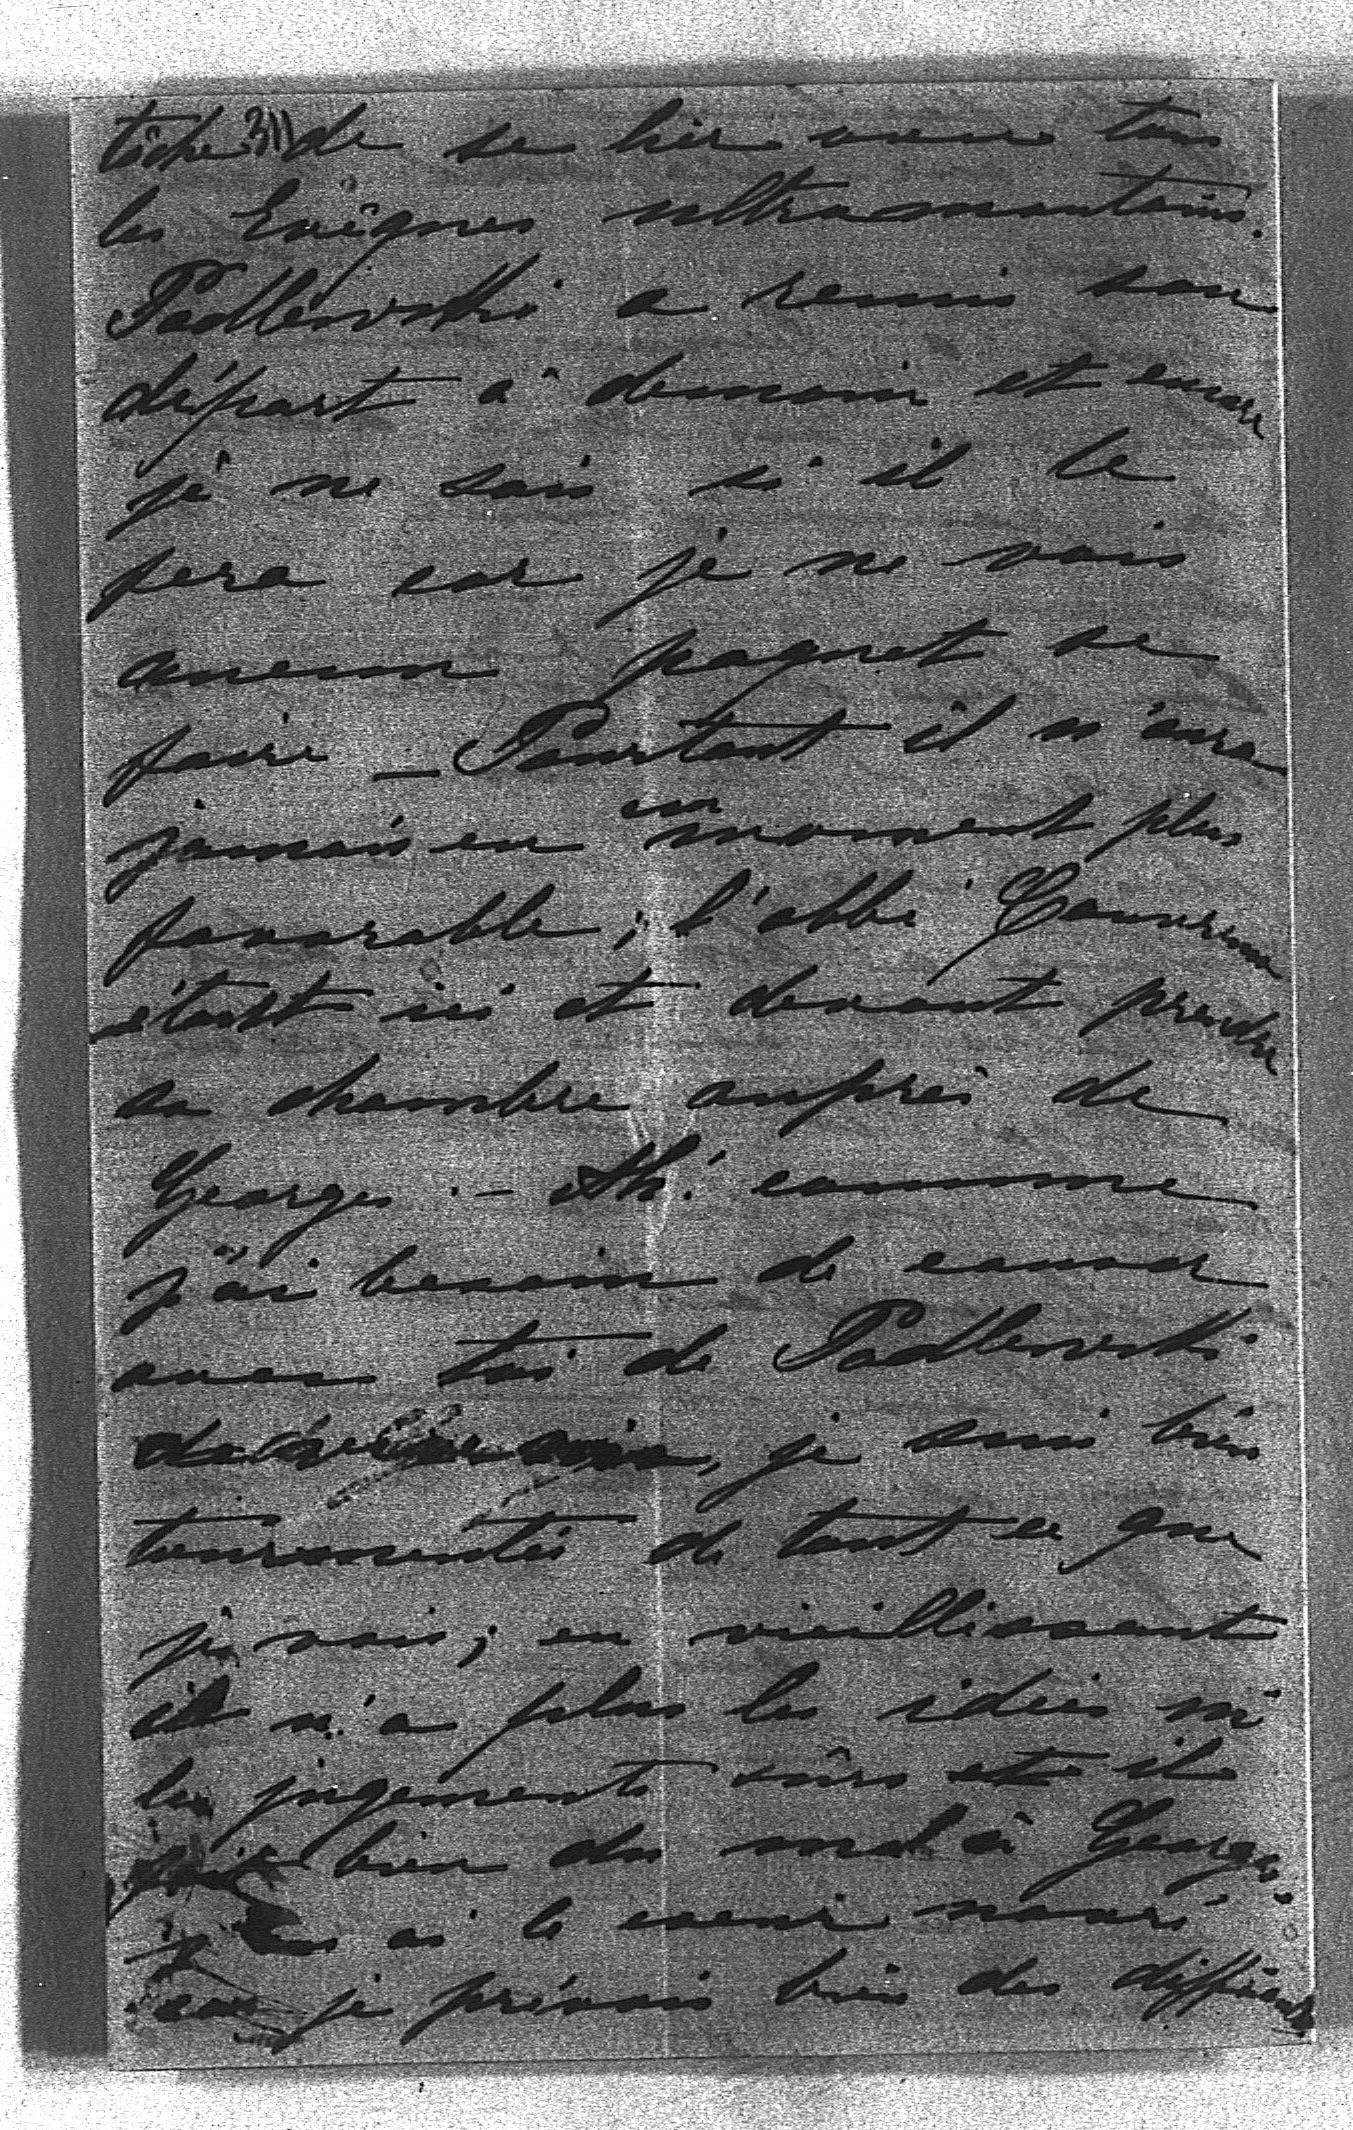 tâche 311 de se lier avec tous
les Evêques ultramontains.
Padlewski a remis son
départ à demain et encore
je ne sais si il le
fera car je ne vois
aucun paquet se
faire — Pourtant il n'aura
jamais eu un moment plus
favorable, l'abbé
était ici et devant prendre
sa chambre auprès de
Georges. — Ah! comme
j'ai besoin de causer
avec toi de Padlewski
je suis bien
tourmentée de tout ce que
je vois; en vieillissant
il n'a plus les idées ni
les jugements sûrs et il
fait bien du mal à Georges.
ai le coeur navré
car je prévois bien des